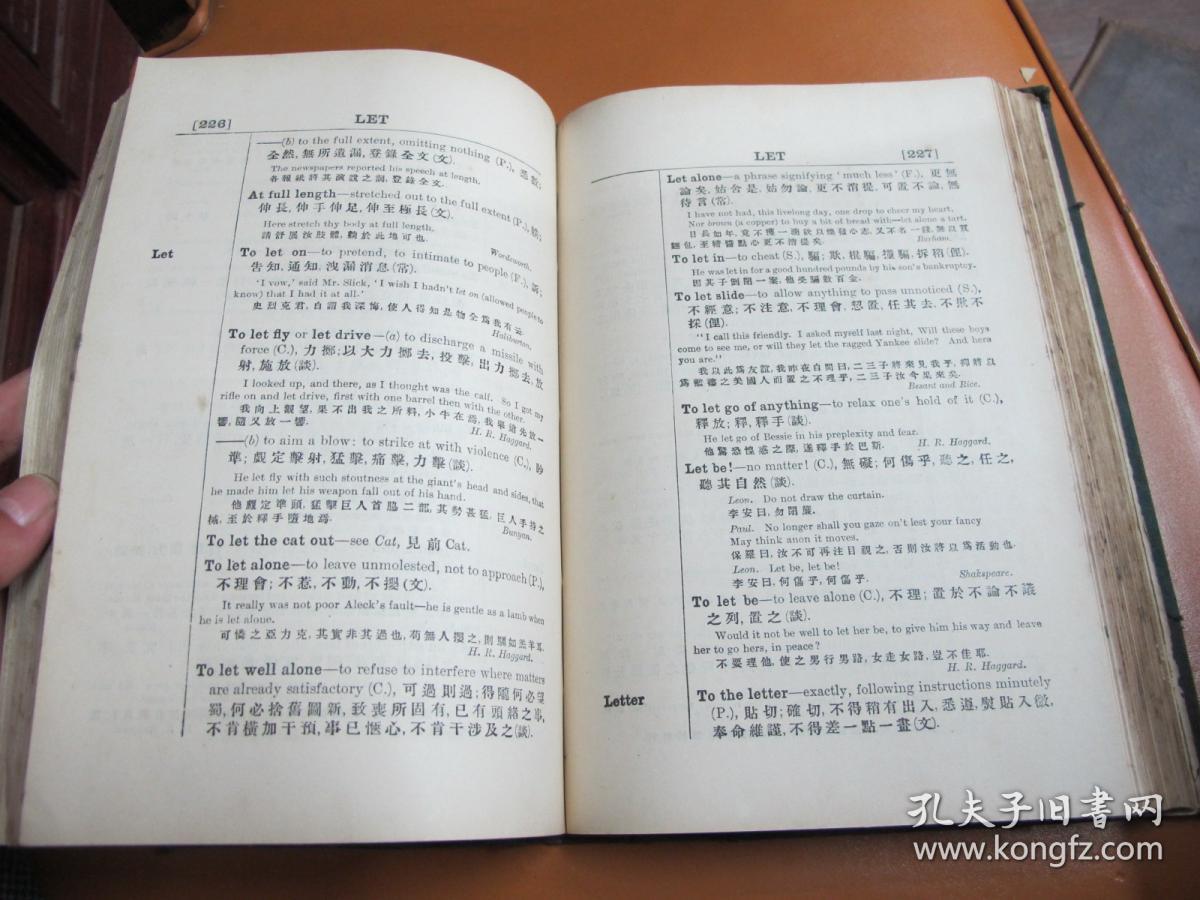 [226] LET
—(b) to the full extent, omitting nothing (P.), 悉數;
全然,無所遺漏,登錄全文(文).
The newspapers reported his speech at length.
各報紙將其演說之詞,登錄全文.
At full length—stretched out to the full extent (P.),
伸長,伸手伸足,伸至極長(文).
Here stretch thy body at full length.
Wordsworth.
請舒展汝肢體,躺於此地可也.
Let
To let on—to pretend, to intimate to people (F.),
告知,通知,洩漏消息(常).
'I vow,' said Mr. Slick, 'I wish I hadn't let on (allowed people to
know) that I had it at all.'
Haliburton.
史烈克君,自謂我深悔,使人得知是物全爲我有云.
To let fly or let drive—(a) to discharge a missile with
force (C.), 力擲;以大力擲去,投擊,出力擲去,放
射,施放(談).
I looked up, and there, as I thought was the calf. So I got my
rifle on and let drive, first with one barrel then with the other.
H. R. Haggard.
我向上觀望,果不出我之所料,小牛在焉,我舉鎗先放一
響,隨又放一響.
—(b) to aim a blow: to strike at with violence (C.),
準;覷定擊射,猛擊,痛擊,力擊(談).
He let fly with such stoutness at the giant's head and sides, that
he made him let his weapon fall out of his hand.
Bunyan.
他覷定準頭,猛擊巨人首脇二部,其勢甚猛,巨人手持之
械,至於釋手墮地焉.
To let the cat out—see Cat, 見前 Cat.
To let alone—to leave unmolested, not to approach (P.),
不理會;不惹,不動,不攖(文).
It really was not poor Aleck's fault—he is gentle as a lamb when
he is let alone.
H. R. Haggard.
可憐之亞力克,其實非其過也,苟無人攖之,則馴如羔羊耳.
To let well alone—to refuse to interfere where matters
are already satisfactory (C.), 可過則過;得隴何必望
蜀,何必捨舊圖新,致喪所固有,已有頭緒之事,
不肯橫加干預,事已愜心,不肯干涉及之(談).
LET [227]
Let alone—a phrase signifying 'much less' (F.), 更無
論矣,姑舍是,姑勿論,更不消提,可置不論,無
待言(常).
I have not had, this livelong day, one drop to cheer my heart,
Nor brown (a copper) to buy a bit of bread—let alone a tart.
Barham.
日長如年,竟不獲一滴飲以娛發心志,又不名一錢,無以買
麵包,至糖醬點心更不消提矣.
To let in—to cheat (S.), 騙;欺,棍騙,撞騙,拆梢(俚).
He was let in for a good hundred pounds by his son's bankruptcy.
因其子倒閉一案,他受騙數百金.
To let slide—to allow anything to pass unnoticed (S.),
不經意;不注意,不理會,忽置,任其去,不瞅不
採(俚).
"I call this friendly. I asked myself last night, Will these boys
come to see me, or will they let the ragged Yankee slide? And here
you are."
Besant and Rice.
我以此爲友誼,我昨夜自問曰,二三子將來見我乎,抑將以
爲襤褸之美國人而置之不理乎,二三子汝今果來矣.
To let go of anything—to relax one's hold of it (C.),
釋放;釋,釋手(談).
He let go of Bessie in his preplexity and fear.
H. R. Haggard.
他驚恐惶惑之際,遂釋手於巴斯.
Let be!—no matter! (C.), 無礙;何傷乎,聽之,任之,
聽其自然(談).
Leon. Do not draw the curtain.
李安曰,勿閉簾.
Paul. No longer shall you gaze on't lest your fancy
May think anon it moves.
保羅曰,汝不可再注目視之,否則汝將以爲活動也.
Leon. Let be, let be!
Shakspeare.
李安曰,何傷乎,何傷乎.
To let be—to leave alone (C.), 不理;置於不論不議
之列,置之(談).
Would it not be well to let her be, to give him his way and leave
her to go hers, in peace?
H. R. Haggard.
不要理他,使之男行男路,女走女路,豈不佳耶.
Letter
To the letter—exactly, following instructions minutely
(P.), 貼切;確切,不得稍有出入,悉遵,熨貼入微,
奉命維謹,不得差一點一畫(文).
孔夫子旧书网
www.kongfz.com